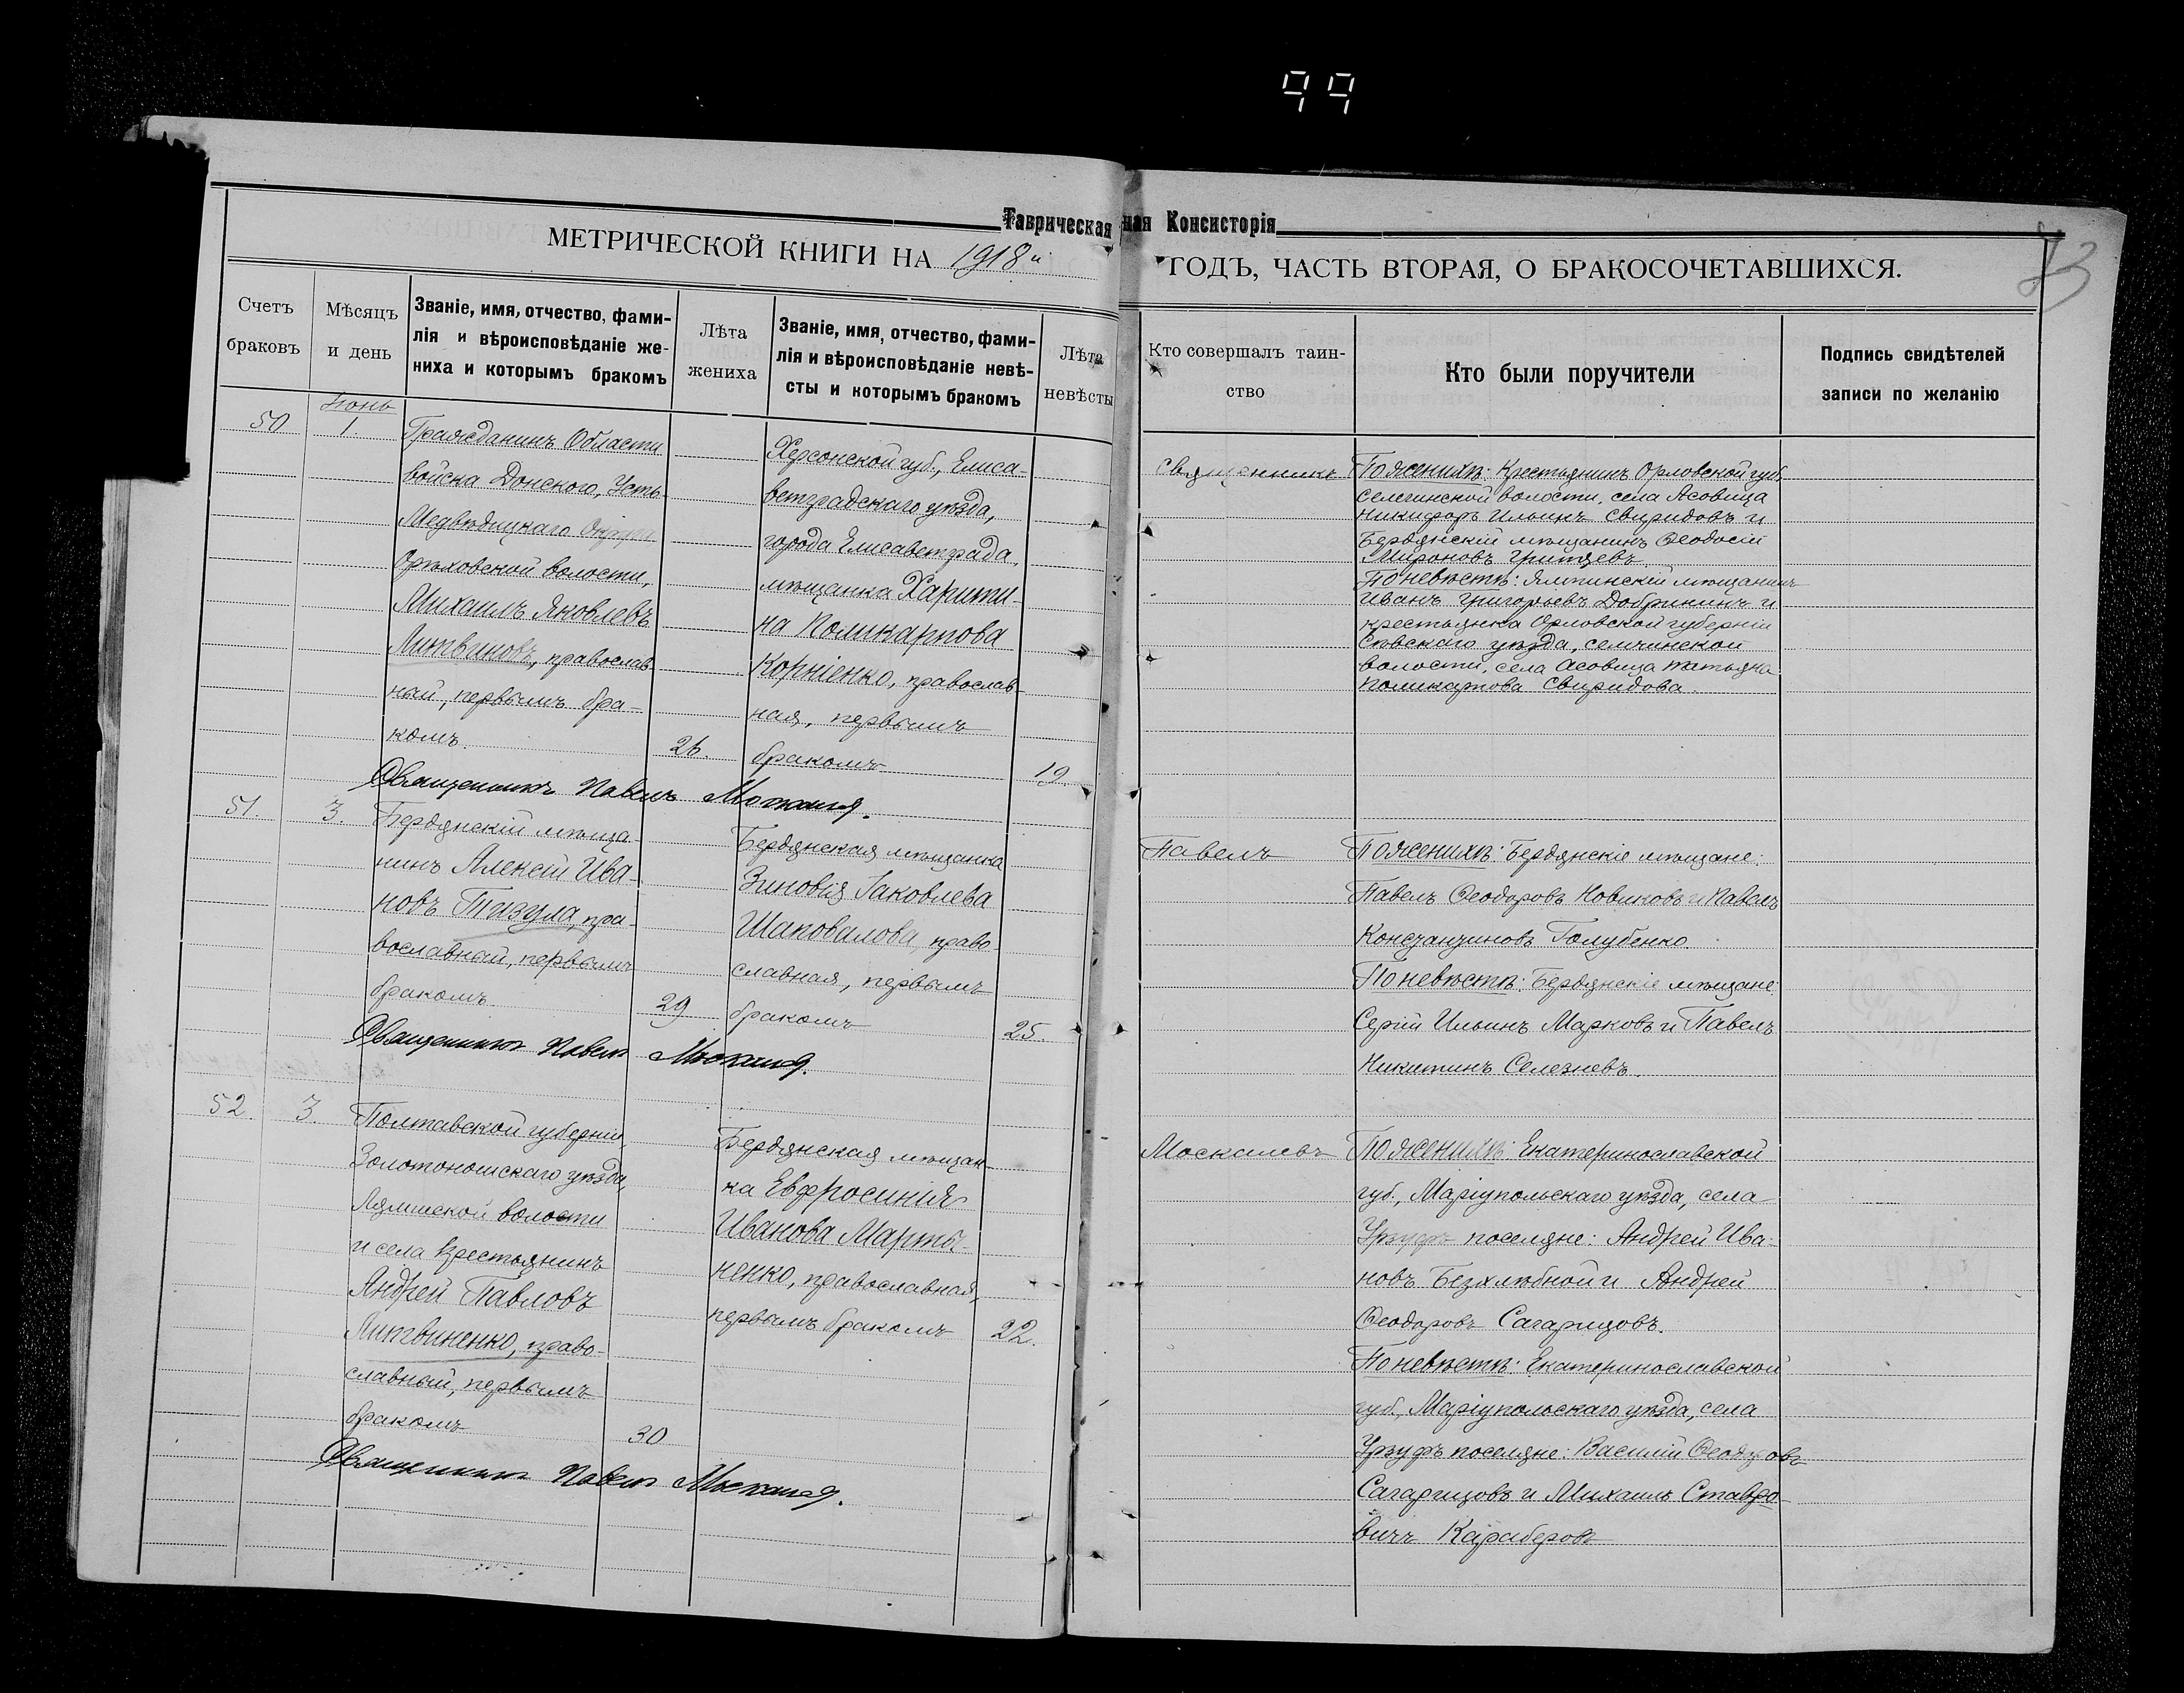 99
Таврическая ная Консисторія
МЕТРИЧЕСКОЙ КНИГИ НА 1918й
ГОДЪ, ЧАСТЬ ВТОРАЯ, О БРАКОСОЧЕТАВШИХСЯ.
Счетъ
браковъ
Мѣсяцъ
и день
Званіе, имя, отчество, фами-
лія и вѣроисповѣданіе же-
ниха и которымъ бракомъ
Лѣта
жениха
Званіе, имя, отчество, фами-
лія и вѣроисповѣданіе невѣ-
сты и которымъ бракомъ
Лѣта
невѣсты
Кто совершалъ таин-
ство
Кто были поручители
Подпись свидѣтелей
записи по желанію
50
1.
Гражданинъ Области
войска Донского, Усть-
Медвѣдицкаго Округа
Орѣховской волости,
Михаилъ Яковлевъ
Литвиновъ, православ
ный, первымъ бра-
комъ.
26.
Херсонской губ., Елиса-
ветградскаго уѣзда,
города Елисаветграда,
мѣщанка Харити-
на Поликарпова
Корніенко, православ-
ная, первымъ
бракомъ
19.
Священникъ Павелъ
Священникъ
По женихѣ: Крестьянинъ Орловской губ,
волости, села Асовица
Никифоръ Ильинъ Свиридовъ и
Бердянскій мѣщанинъ Ѳеодосій
Мироновъ Гритцевъ.
По невѣстѣ: Ялтинскій мѣщанинъ
Иванъ Григорьевъ Добрикинъ и
крестьянка Орловской губерніи
Сѣвскаго уѣзда, семчинской
волости, села Асовица Татьяна
Поликарпова Свиридова.
51.
3.
Бердянскій мѣща-
нинъ Алексій Ива-
новъ Тазула, пра-
вославный, первымъ
бракомъ.
29
Бердянская мѣщанка
Зиновія Іаковлева
Шаповалова, право-
славная, первымъ
бракомъ
25.
Священникъ Павелъ
Павелъ
По женихѣ: Бердянскіе мѣщане:
Павелъ Ѳеодоровъ Новиковъ и Павелъ
Константиновъ Голубенко.
По невѣстѣ: Бердянскіе мѣщане:
Сергій Ильинъ Марковъ и Павелъ
Никитинъ Селезневъ.
52.
3.
Полтавской губерніи,
Золотоношскаго уѣзда,
волости
и села крестьянинъ
Андрей Павловъ
Литвиненко, право-
славный, первымъ
бракомъ
30
Бердянская мѣщан-
ка Евфросинія
Иванова Марты-
ненко, православная,
первымъ бракомъ
22.
Священникъ Павелъ
Москалевъ
По женихѣ: Екатеринославской
губ., Маріупольскаго уѣзда, села
Урзуфъ поселяне: Андрей Ива-
новъ Безхлѣбной и Андрей
Ѳеодоровъ Сагарицовъ.
По невѣстѣ: Екатеринославской
губ., Маріупольскаго уѣзда, села
Урзуфъ поселяне: Василій Ѳеодоровъ
Сагарицовъ и Михаилъ Ставро-
вичъ Караберовъ